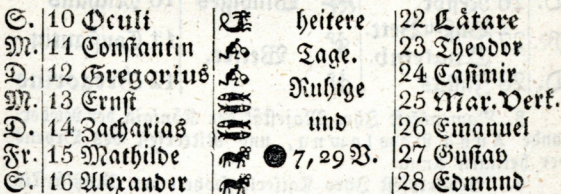 S. 10 Oculi heitere 22 Lätare
M. 11 Constantin Tage. 23 Theodor
D. 12 Gregorius Ruhige 24 Casimir
M. 13 Ernst 25 Mar. Verk.
D. 14 Zacharias und 26 Emanuel
Fr. 15 Mathilde 7, 29 V. 27 Gustav
S. 16 Alexander 28 Edmund